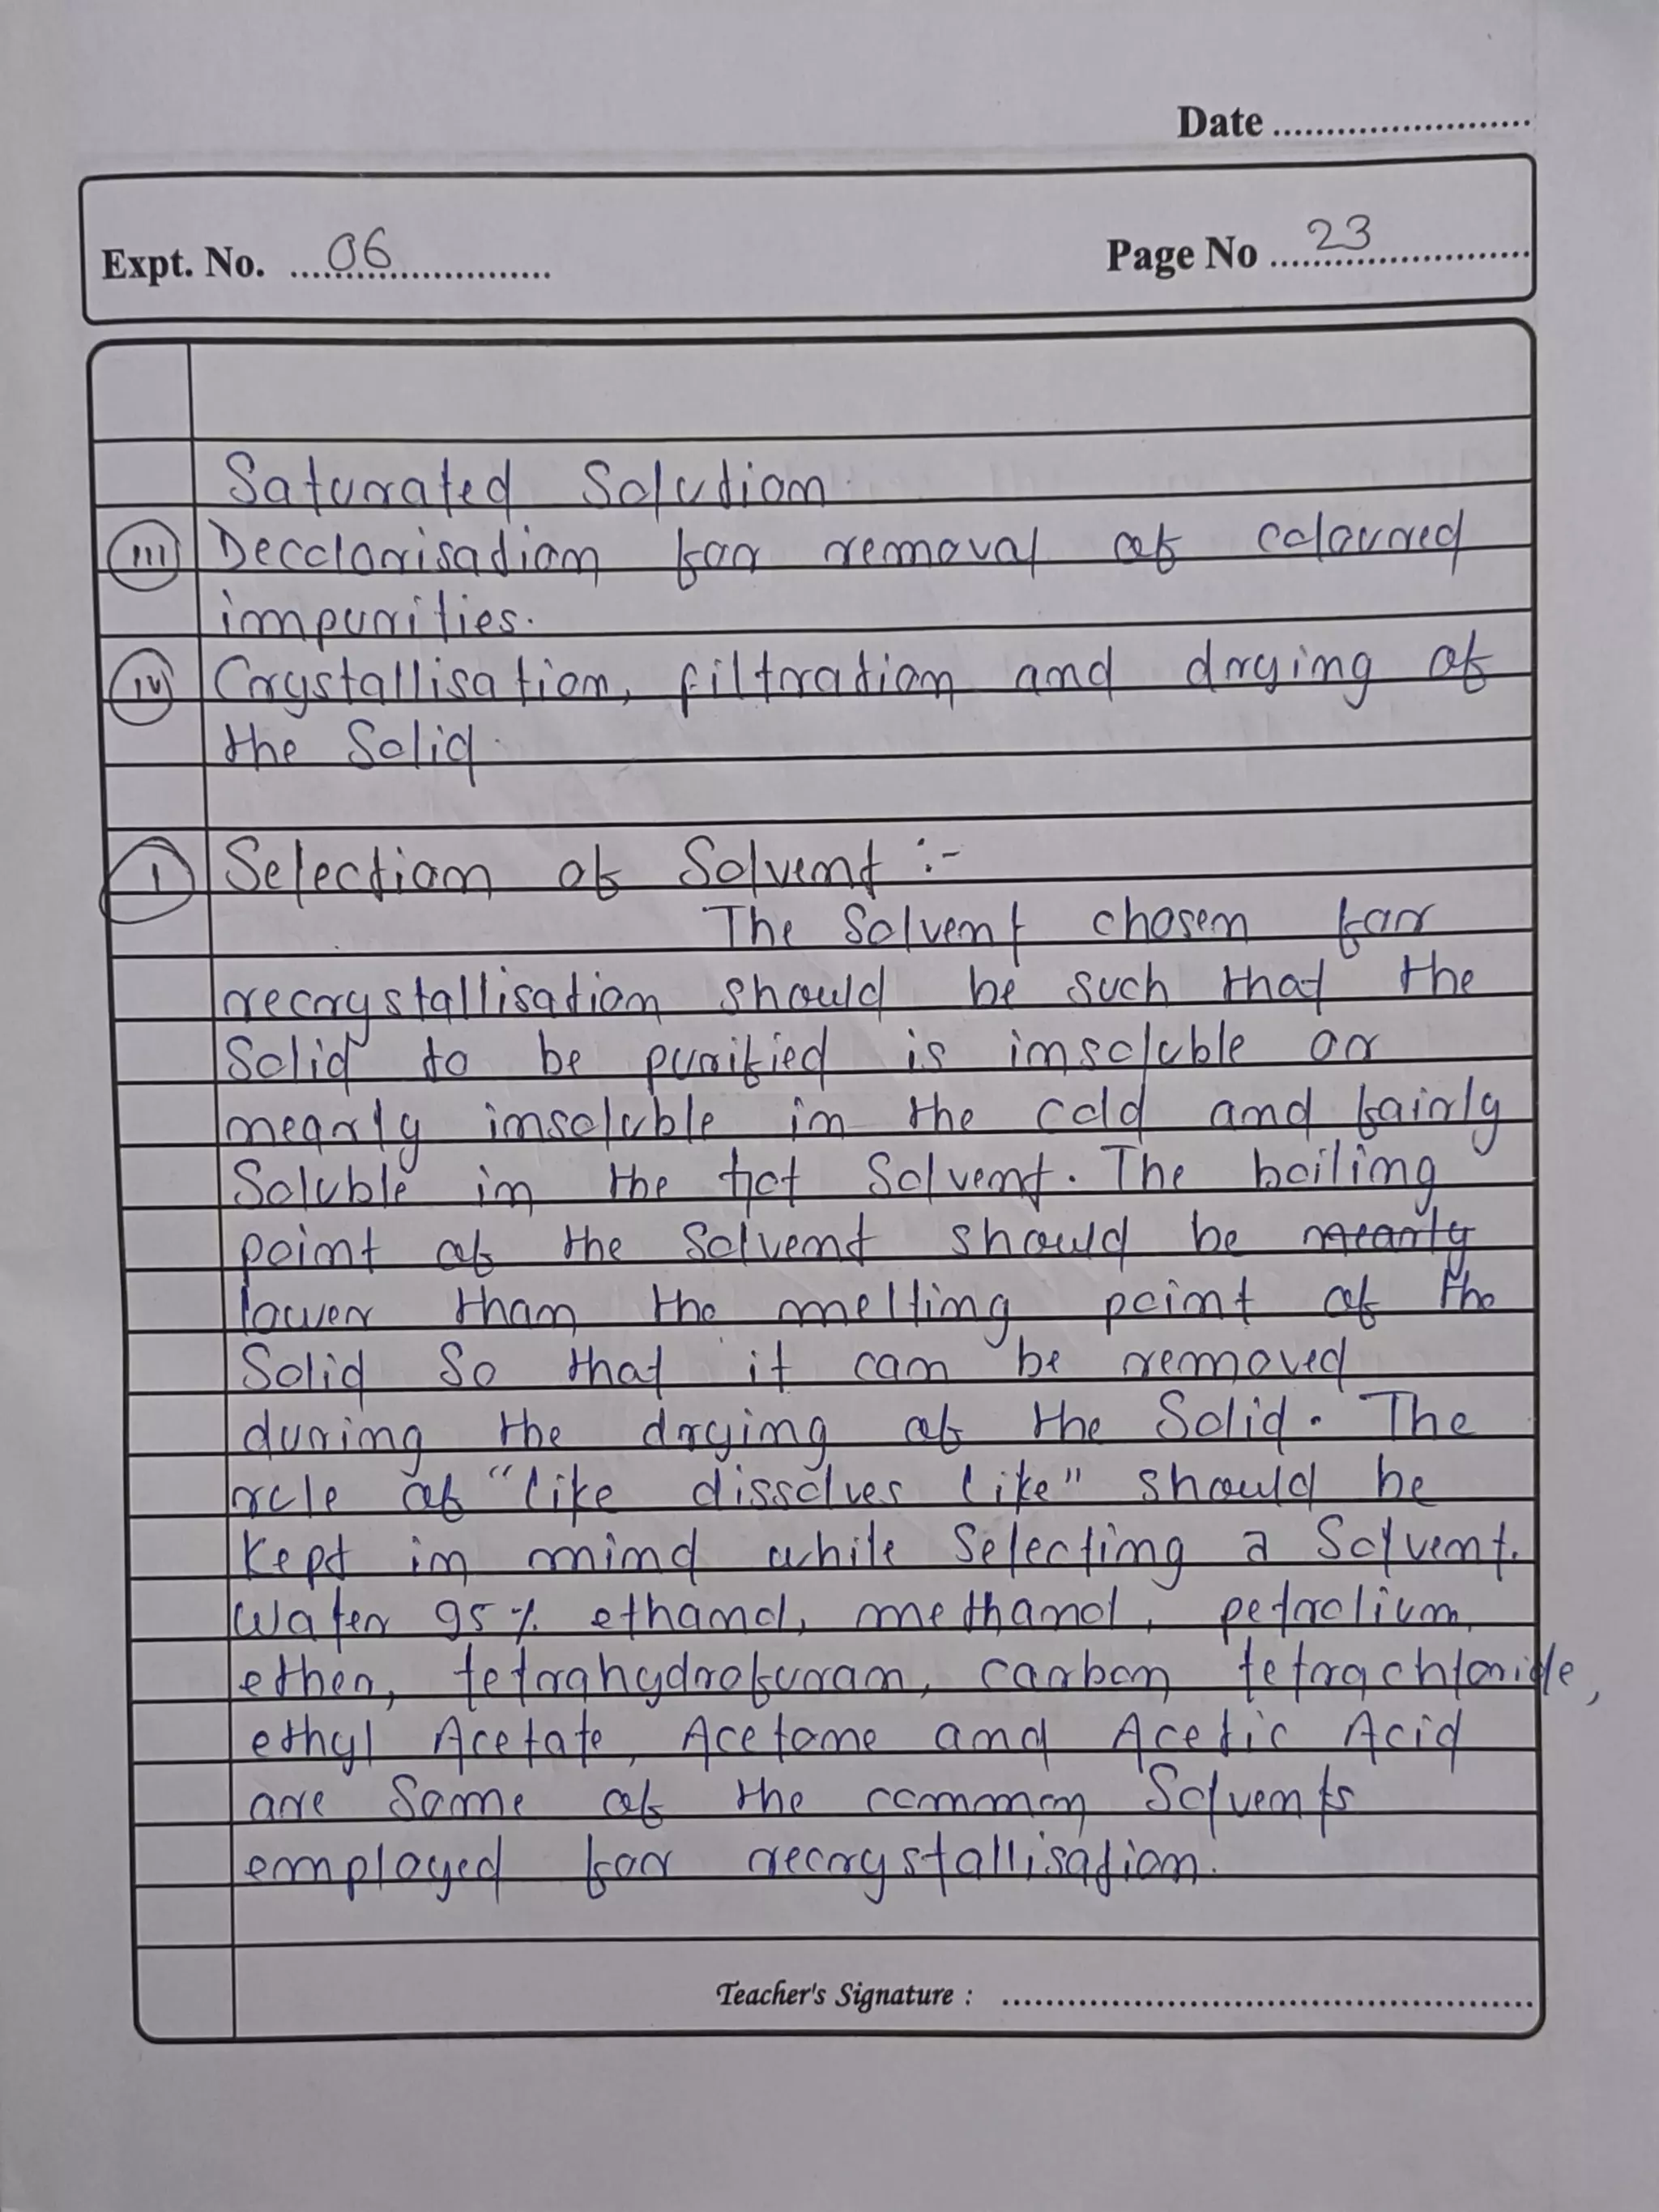 Date
Expt. No. 06
Page No 23
Saturated Solution.
(iii) Decolorisation for removal of coloured
impurities.
(iv) Crystallisation, filtration and drying of
the Solid.
(i) Selection of Solvent :-
The Solvent chosen for
recrystallisation should be such that the
Solid to be purified is insoluble or
nearly insoluble in the cold and fairly
Soluble in the hot Solvent. The boiling
point of the Solvent should be nearly
lower than the melting point of the
Solid So that it can be removed
during the drying of the Solid. The
role of "like dissolves like" should be
kept in mind while Selecting a Solvent.
Water 95% ethanol, methanol, petrolium
ether, tetrahydrofuran, carbon tetrachloride,
ethyl Acetate, Acetone and Acetic Acid
are Some of the common Solvents
employed for recrystallisation.
Teacher's Signature :